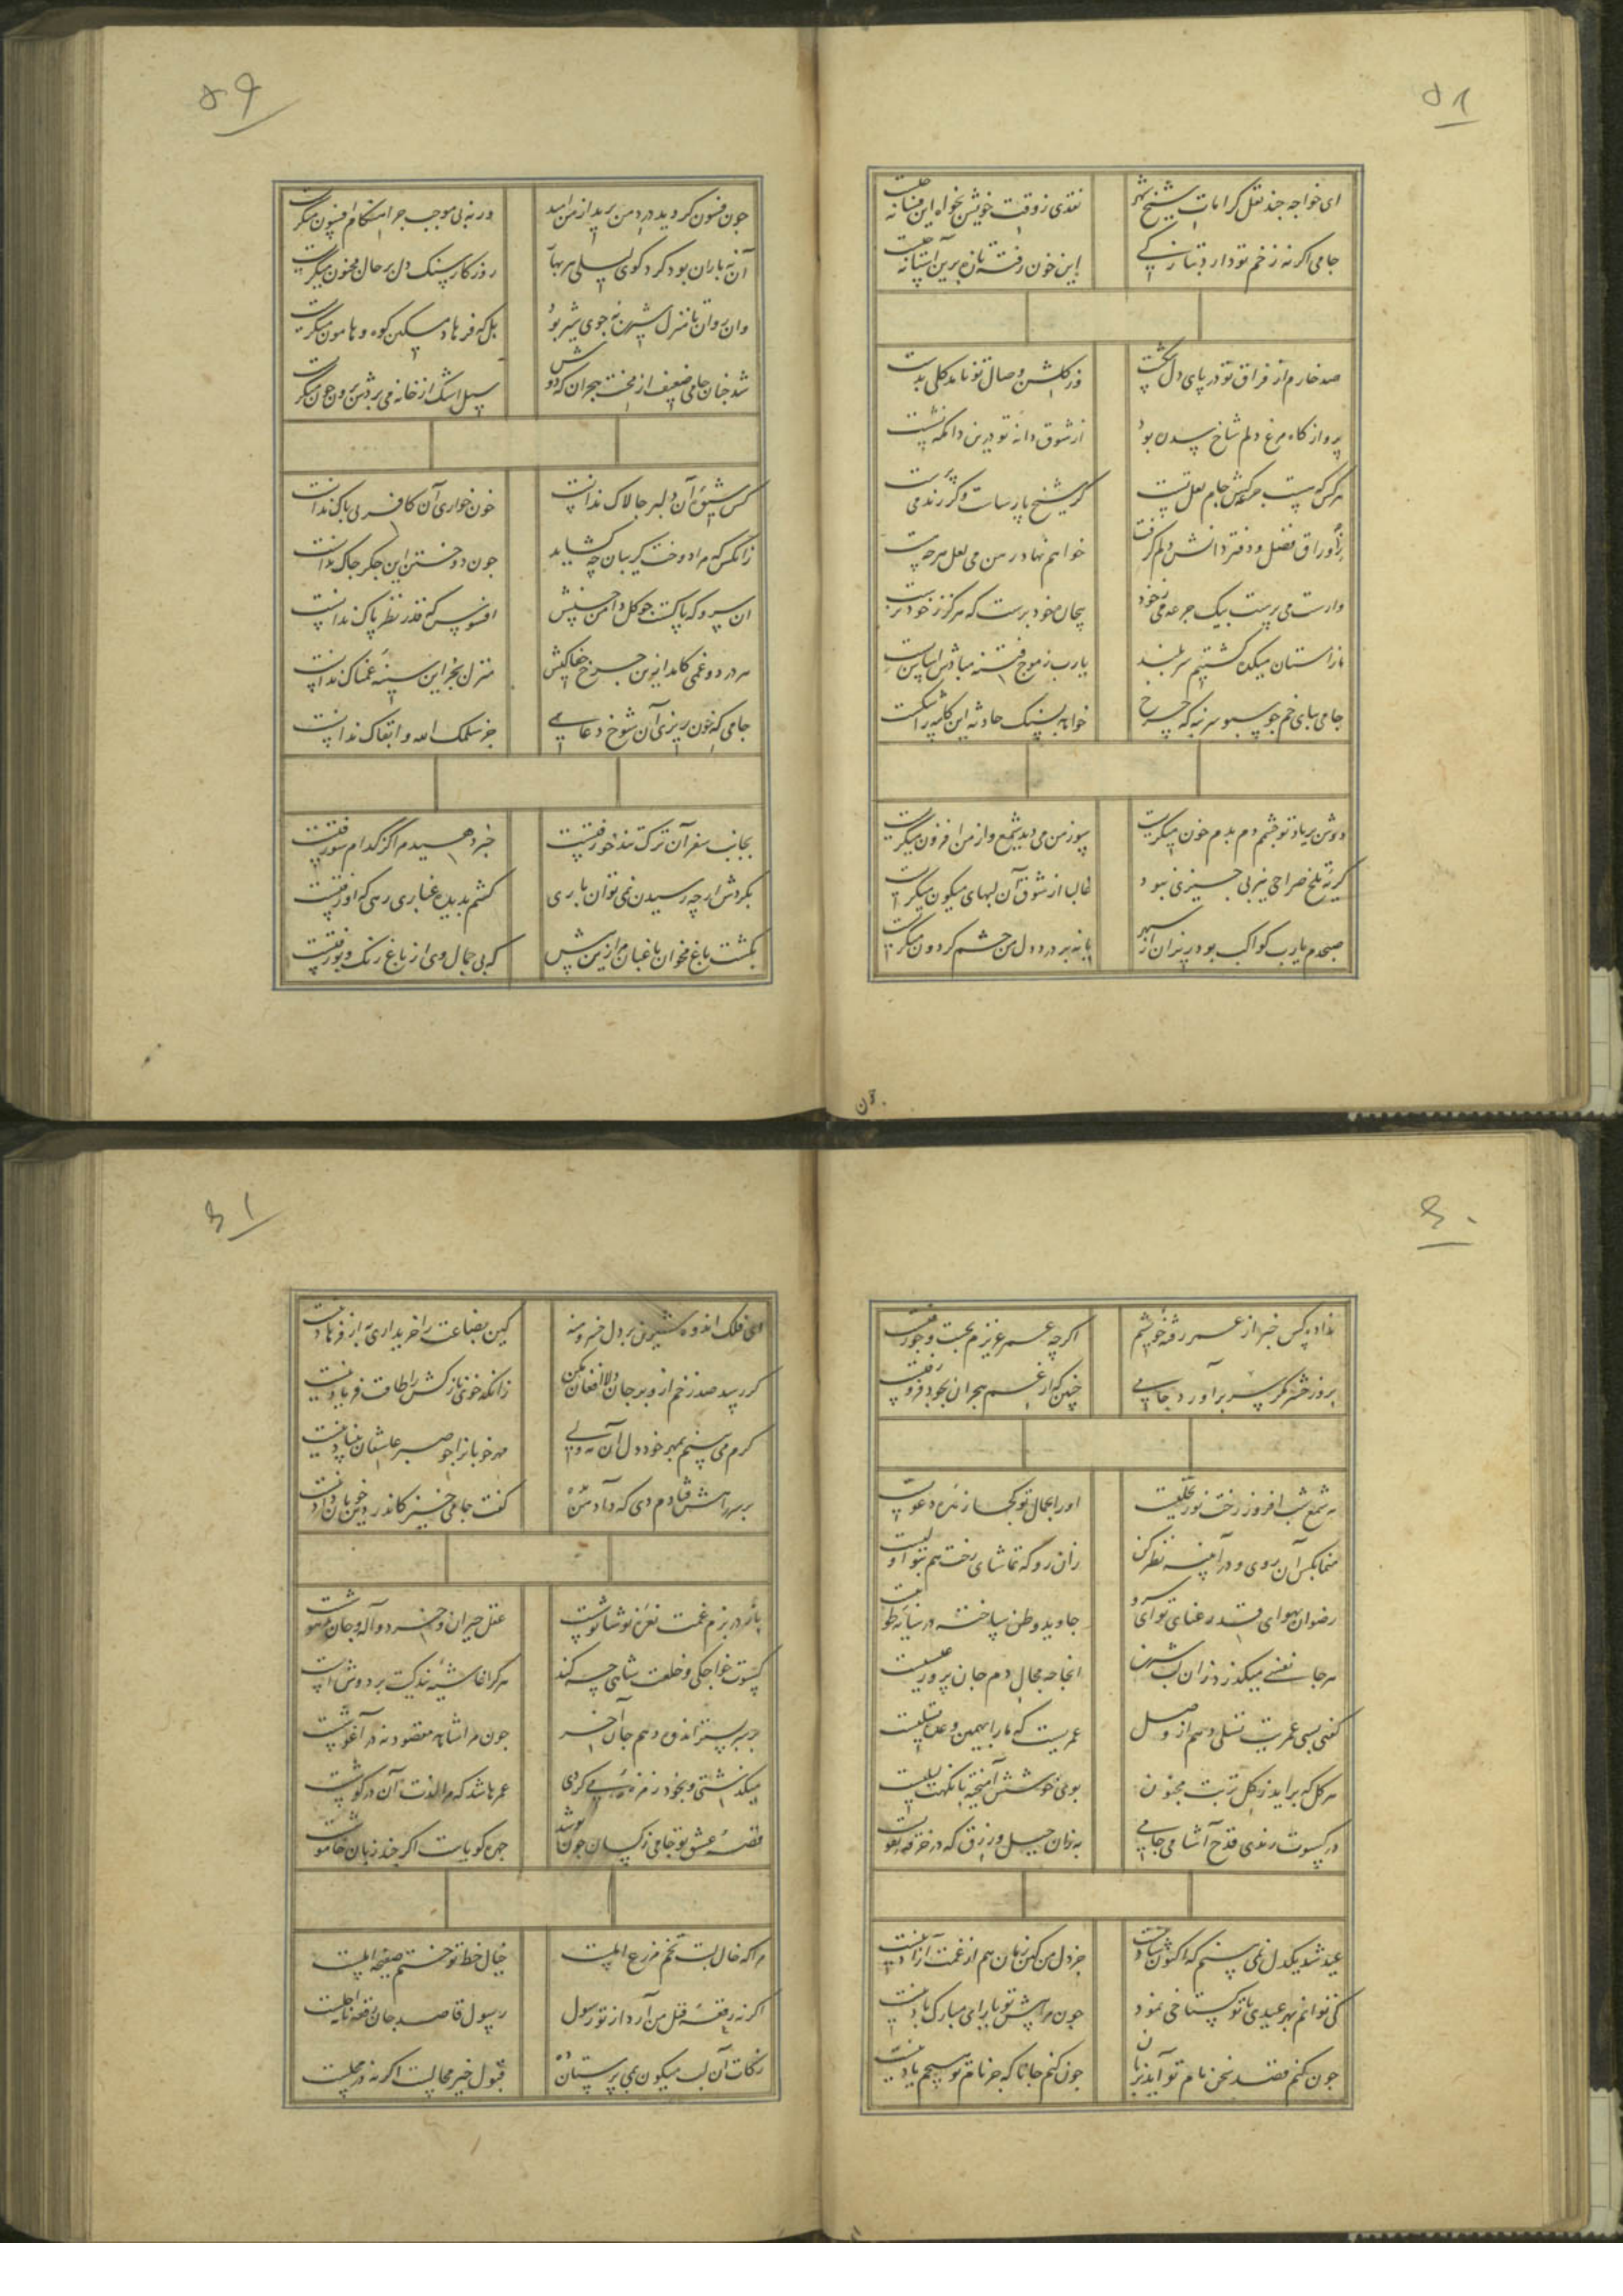 ۵۸
ای خواجه چند نقل کرامات شیخ شهر
نقدی ز وقت خویش بخواه این فسانه چیست
جامی اگر نه زخم تو دارد ز
این خون رفته تازه برین آستانه چیست
صد خارم از فراق تو در پای دل شکست
وز گلشن وصال تو نامد گلی بدست
پروازگاه مرغ دلم شاخ سدره بود
از شوق دانه تو درین دامگه نشست
هر کس که هست جرعه‌کش جام لعل تست
گر شیخ پارساست وگر رند می پرست
ز اوراق فضل و دفتر دانش دلم گرفت
خواهم نهاد رهن می لعل هر چه هست
وارست می پرست بیک جرعه می ز خود
بیچاره خود پرست که هرگز ز خود نرست
از آستان میکده گشتیم سر بلند
یارب ز موج فتنه مبادش اساس پست
جامی بپای خم چو سبو سر بنه که چرخ
خواهد بسنگ حادثه این کاسه را شکست
دوش بر یاد تو چشمم دم بدم خون میگریست
سوز من می دید شمع و از من افزون میگریست
گریه تلخ صراحی نیز بی چیزی نبود
غالبا از شوق آن لبهای میگون میگریست
صبحدم یارب کواکب بود ریزان از سپهر
یا نه بر درد دل من چشم گردون میگریست
۵۹
چون فسون کردید درد من پدید از من امید
ورنه بی موجب چرا هنگام افسون میگریست
آن نه باران بود گرد کوی لیلی هر بهار
روزگار سنگ دل بر حال مجنون میگریست
وان روان تا منزل شیرین نه جوی شیر بود
بلکه فرهاد مسکین کوه و هامون میگریست
شد چنان جامی ضعیف از محنت هجران که دوش
سیل اشک از خانه می بردش برون چون میگریست
کس شیوه آن دلبر چالاک ندانست
خون خواری آن کافر بی باک ندانست
زانکس که مرا دوخت گریبان چه گشاید
چون دوختن این جگر چاک ندانست
آن سرو که پاکست چو گل دامن حسنش
افسوس که قدر نظر پاک ندانست
هر درد و غمی کامد ازین چرخ جفاکیش
منزل بجز این سینه غمناک ندانست
جامی که خون ریزی آن شوخ دعایی
جز سلمک الله و ابقاک ندانست
بجانب سفر آن ترک تند خو رفتست
خبر دهید مرا کز کدام سو رفتست
بگردش ار چه رسیدن نمی توان باری
کشم بدیده غباری رهی که او رفتست
بگشت باغ مخوان باغبان مرا زین پیش
که بی جمال وی از باغ رنگ و بو رفتست
۶۰
نداد کس خبر از عمر رفته خویشم
اگر چه عمر عزیزم بجست و جو رفتست
بروز حشر مگر سر برآورد جامی
چنین که از غم هجران بخود فرو رفتست
نه شمع شب افروز رخت نور تجلیست
او را بجمال تو کجا زهره دعویست
منما بکس آن روی و در آیینه نظر کن
زان رو که تماشای رخت هم بتو اولیست
رضوان بهوای قد رعنای تو ای سرو
جاوید وطن ساخته در سایه طوبیست
هر جا نفسی میگذرد زان لب شیرین
آنجا چه مجال دم جان پرور عیسیست
گفتی بسی عمریت تسلی دهم از وصل
عمریست که ما را بهمین وعده تسلیست
هر گل که برآید ز گل تربت مجنون
بوی خوشش آمیخته با نکهت لیلیست
در کسوت رندی قدح آشامی جامی
به زان حیل و زرق که در خرقه تقویست
عید شد یکدل نمی بینم که اکنون شاد نیست
جز دل من کین زمان هم از غمت آزاد نیست
کی توانم بهر عیدی با تو گستاخی نمود
چون مرا پیش تو یارای مبارک باد نیست
چون کنم قصد سخن نام تو آید بر زبان
چون کنم جانا که جز نام تو هیچم یاد نیست
۶۱
ای فلک اندوه شیرین بر دل خسرو منه
کین بضاعت را خریداری به از فرهاد نیست
گر رسید صد زخم از وی بر جان دلا افغان مکن
زانکه خوی نازکش را طاقت فریاد نیست
گرم می بینم بمهر خود دل آن مه ولی
مهر خوبان را چو صبر عاشقان بنیاد نیست
بر سر راهش فتادم دی که داد من بده
گفت جامی خیز کاندر دین خوبان داد نیست
باز در بزم غمت نعره نوشانوشست
عقل حیران و خرد واله و جان مدهوشست
کسوت خواجگی و خلعت شاهی چه کند
هر که را غاشیه بندگیت بر دوشست
جز به بستر اندوه دهم جان آخر
چون مرا شاهد مقصود نه در آغوشست
میگذشتی و بخود زمزمه‌یی میکردی
عمرها شد که مرا لذت آن در گوشست
قصه عشق تو جامی ز کسان چون پوشد
چهره گویاست اگر چند زبان خاموشست
مرا که خال لبت تخم مزرع املست
خیال خط تو ختم صحیفه املست
اگر نه رقعه قتل من آرد از تو رسول
رسول قاصد جان رقعه نامه اجلست
زکات آن لب میگون بمی پرستان ده
قبول خیر محالست اگر نه در محلست